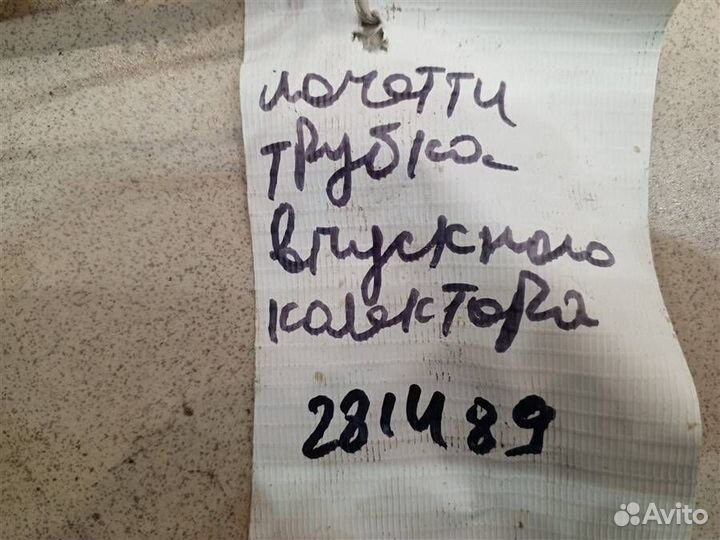 лачетти
трубка
впускного
колектора
281489
Avito